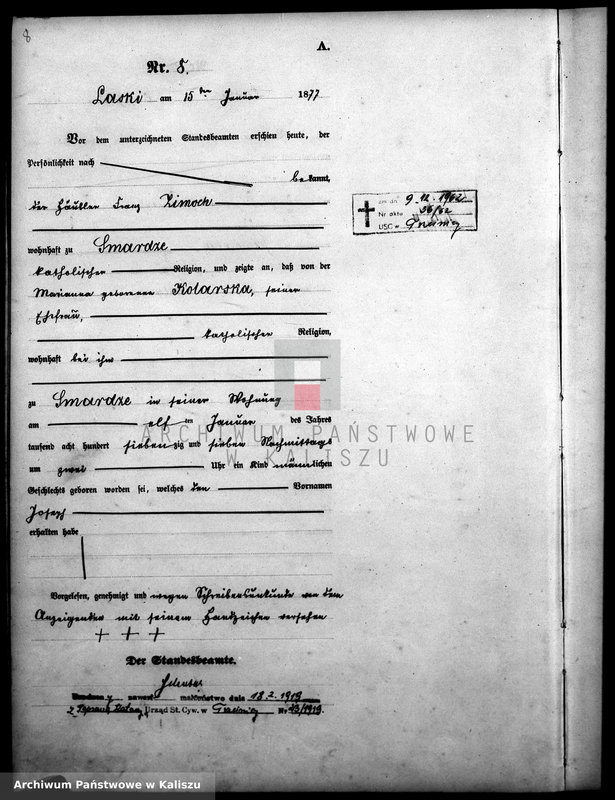 8
A.
Nr. 8.
Laski am 15ten Januar 1877
Vor dem unterzeichneten Standesbeamten erschien heute, der
Persönlichkeit nach
bekannt,
der Häusler Franz Zimoch
wohnhaft zu Smardze
katholischer Religion, und zeigte an, daß von der
Marianna geborenen Kotarska, seiner
Ehefrau,
katholischer Religion,
wohnhaft bei ihm
zu Smardze in seiner Wohnung
am elften Januar des Jahres
tausend acht hundert siebenzig und sieben Nachmittags
um zwei Uhr ein Kind männlichen
Geschlechts geboren worden sei, welches den Vornamen
Joseph
erhalten habe
Vorgelesen, genehmigt und wegen Schreibensunkunde von dem
Anzeigenden mit seinem Handzeichen versehen
+ + +
Der Standesbeamte.
zawarł małżeństwo dnia 18.2.1919
z Urząd St. Cyw. w Nr 13/1919
zm dn 9.12.1962
Nr aktu 56/62
USC w
ARCHIWUM PAŃSTWOWE
W KALISZU
Archiwum Państwowe w Kaliszu